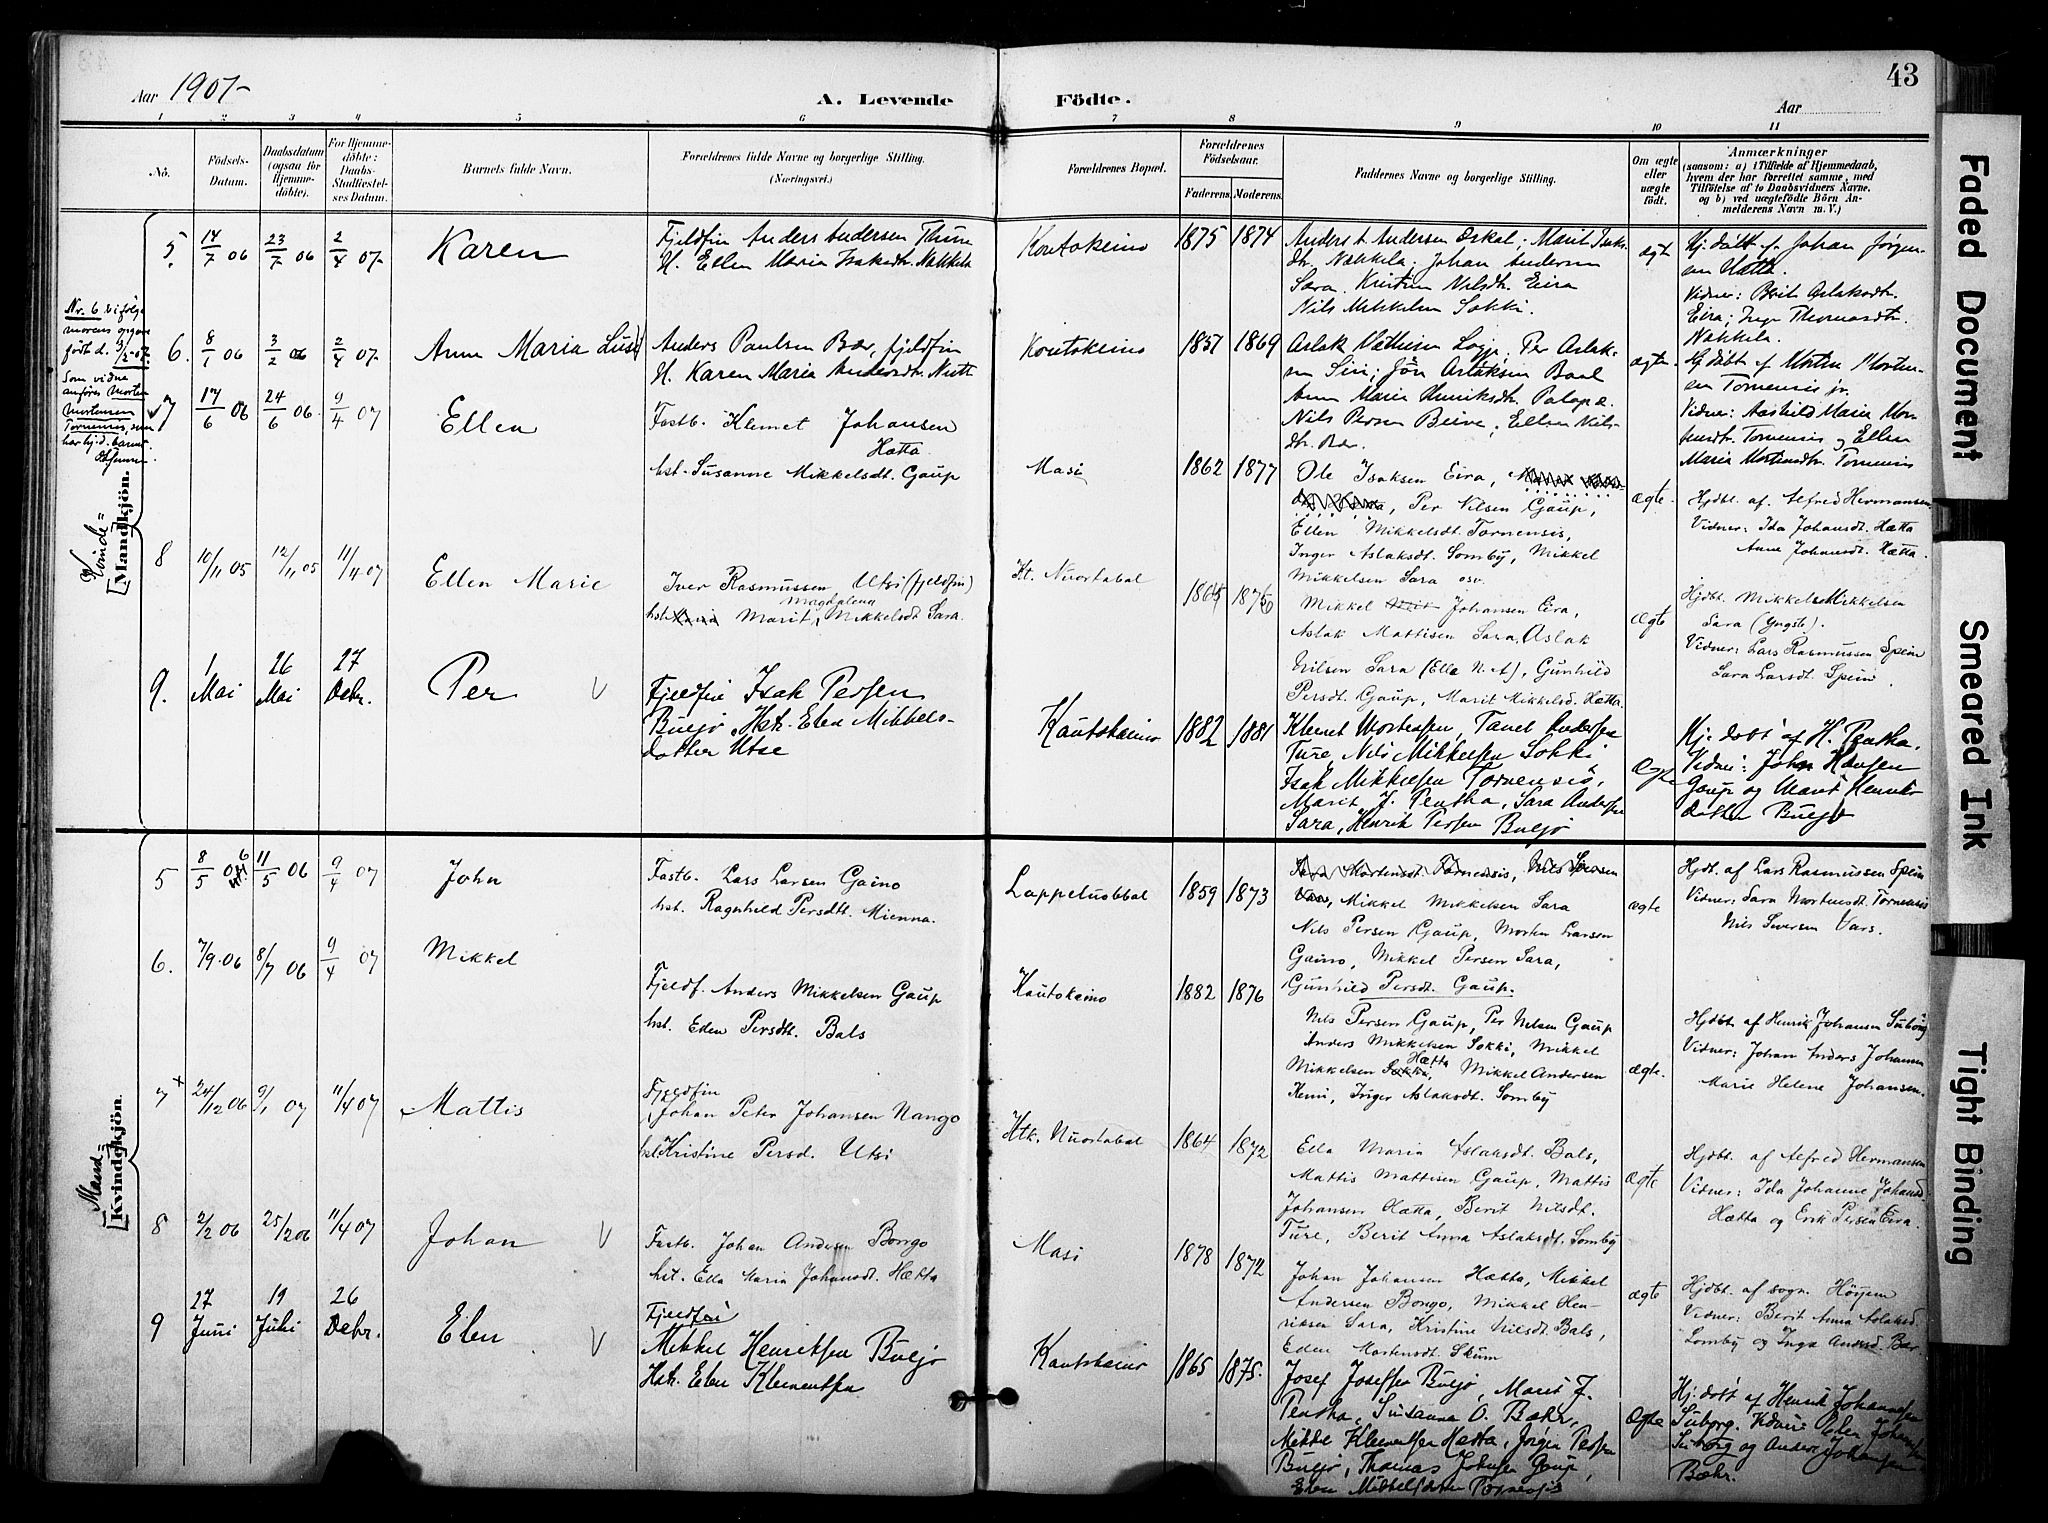 43
Aar 1907-
A. Levende Födte.
Aar
1 2 3 4 5 6 7 8 9 10 11
No.
Födsels-Datum.
Daabsdatum (ogsaa for Hjemmedöbte).
For Hjemmedöbte: Daabs-Stadfæstelses Datum.
Barnets fulde Navn.
Forældrenes fulde Navne og borgerlige Stilling.
(Næringsvei.)
Forældrenes Bopæl.
Forældrenes Födselsaar.
Faderens. Moderens.
Faddernes Navne og borgerlige Stilling.
Om ægte eller uægte födt.
Anmærkninger
(saasom: a) i Tilfælde af Hjemmedaab,
hvem der har forrettet samme, med
Tilföielse af to Daabsvidners Navne.
og b) ved uægtefödte Börn Anmelderens Navn m. V.)
Nr. 6 ifølge
morens opgave
født d. 3/2-07.
Som vidne
anføres Morten
Mortensen
Tornensis, som
har hj.d. barnet
Kvinde=
[Mandkjön.]
5. 14/7 06 23/7 06 2/4 07- Karen
Fjeldfin Anders Andersen Thure
H. Ellen Maria Isaksdt. Nakkela
Koutokeino 1875 1874
Anders t. Andersen Oskal; Marit Isaks
dtr. Nakkela. Johan Andersen
Sara. Kristin Nilsdt. Eira
Nils Mikkelsen Sokki.
ægt
Hj. døbt f. Johan Jørgensen Hætta.
Vidner: Berit Aslaksdtr.
Eira; Inge Thomasdtr.
Nakkela.
6. 8/1 06 3/2 06 2/4 07. Anne Maria Luse
Anders Paulsen Bær, fjeldfin
H. Karen Maria Andersdt. Nutt
Koutokeino 1857 1869
Aslak Mathisen Logje, Per Aslaksen Siri; Jon Aslaksen Baal
Anne Maria Henriksdt. Palopæ.
Nils Persen Beive; Ellen Nilsdtr. Bær.
ægte
Hj døbt af Morten Mortensen Tornensis jr.
Vidner: Aashild Maria Mortensdtr. Tornensis og Ellen
Maria Mortensdtr. Tornensis
7 17/6 06 24/6 06. 9/4 07 Ellen
Fastb. Klemet Johansen
Hætta.
hst. Susanne Mikkelsdt. Gaup
Masi 1862 1877
Ole Isaksen Eira,
Per Nilsen Gaup,
Ellen Mikkelsdt. Tornensis,
Inger Aslaksdt. Somby, Mikkel
Mikkelsen Sara osv.
ægte.
Hjdbt. af. Alfred Hermansen
Vidner: Ida Johansdt. Hætta
Anne Johansdt. Hætta.
8 10/11 05 12/11 05 11/4 07 Ellen Marie
Iver Rasmussen Utsi (fjeldfin)
Magdalena
hst Marit, Mikkelsdt Sara.
Kt. Nuortabal 1865 1876
Mikkel Johansen Eira,
Aslak Mattisen Sara, Aslak
Nilsen Sara (Ella N. A), Gunhild
Persdt. Gaup, Marit Mikkelsd. Hætta.
ægte
Hjdbt. Mikkel Mikkelsen
Sara (yngste).
Vidner: Lars Rasmussen Spein
Sara Larsdt. Spein.
9. 1 Mai 26 Mai 27 Debr. Per V
Fjeldfin Isak Persen
Buljo, Hst. Elen Mikkels-
dotter Utse
Kautokeino 1882 1881
Klemet Mortensen, Tanel Andersen
Ture, Nils Mikkelsen Sokki
Isak Mikkelsen Tornensis,
Marit J. Pentha, Sara Andersen
Sara, Henrik Persen Buljo
Ægte
Hj. døbt af H. Pentha.
Vidner: John Hansen
Gaup og Marit Henriks
dotter Buljo
Mand=
[Kvindekjön.]
5 8/5 06 11/5 06 9/4 07 John
Fastb. Lars Larsen Gaino
hst. Ragnhild Persdt. Mienna.
Lappeluobbal 1859 1873
Sara Mortensdt Tornensis, Nils Siversen
Vars, Mikkel Mikkelsen Sara
Nils Persen Gaup, Morten Larsen
Gaino, Mikkel Persen Sara,
Gunhild Persdt. Gaup.
ægte
Hjdt. af Lars Rasmussen Spein
Vidner: Sara Mortensdt. Tornensis
Nils Siversen Vars.
6. 7/9. 06 8/7 06 9/4 07 Mikkel
Fjeldf. Anders Mikkelsen Gaup
hst. Ellen Persdt. Bals
Kautokeino 1882 1876
Nils Persen Gaup, Per Nilsen Gaup
Anders Mikkelsen Sokki, Mikkel
Hætta
Mikkelsen Sokki, Mikkel Andersen
Kemi, Inger Aslaksdt. Somby
ægte.
Hjdbt af Henrik Johansen Suborg
Vidner: Johan Anders Johansen
Marie Helene Johansen.
7 x 24/12 06 9/1 07 11/4 07 Mattis
Fjeldfin
Johan Peter Johansen Nango
hst Kristine Persd. Utsi
Ktk. Nuortabal 1864 1872
Ella Maria Aslaksdt. Bals,
Mattis Mattisen Gaup, Mattis
Johansen Hætta, Berit Nilsdt.
Ture, Berit Anna Aslaksdt. Somby
ægte
Hjdbt. af Alfred Hermansen
Vidner: Ida Johanne Johansd.
Hætta og Erik Persen Eira.
8 2/2 06 25/2 06 11/4 07 Johan V
Fastb. Johan Andersen Bongo
hst. Ella Maria Johansdt. Hætta
Masi 1878 1872
Johan Johansen Hætta, Mikkel
Andersen Bongo, Mikkel Hen-
riksen Sara, Kristine Nilsdt. Bals,
Ellen Mortensdt. Skum
ægte
Hjdbt. af sogn. Hörjem
Vidner: Berit Anna Aslaksd.
Somby og Inga Andersd. Bær.
9 27 Juni 19 Juli 26 Debr. Elen V
Fjeldfin
Mikkel Henriksen Buljo
Hst. Elen Klementsen
Kautokeino 1865 1875.
Josef Josefsen Buljo, Marit J.
Pentha, Susanna O. Bæhr,
Mikkel Klementsen Hætta, Jörgen Persen
Buljo, Thomas Johnsen Gaup,
Elen Mikkelsdotter Tornensis
Ægte
Hj. døbt af Henrik Johannesen
Suborg. Vidner Elen Johansen
Suborg og Anders Johansen
Bæhr.
Faded Document
Smeared Ink
Tight Binding